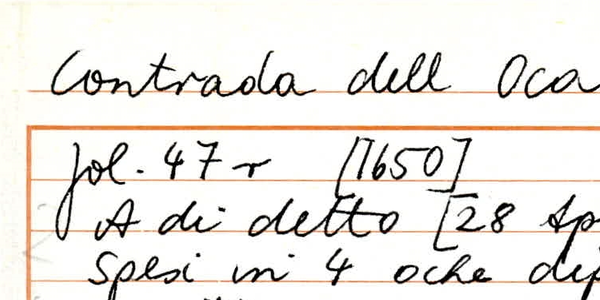 Contrada dell Oca
fol. 47 r [1650]
A di detto [28 Ap
spesi in 4 oche dip